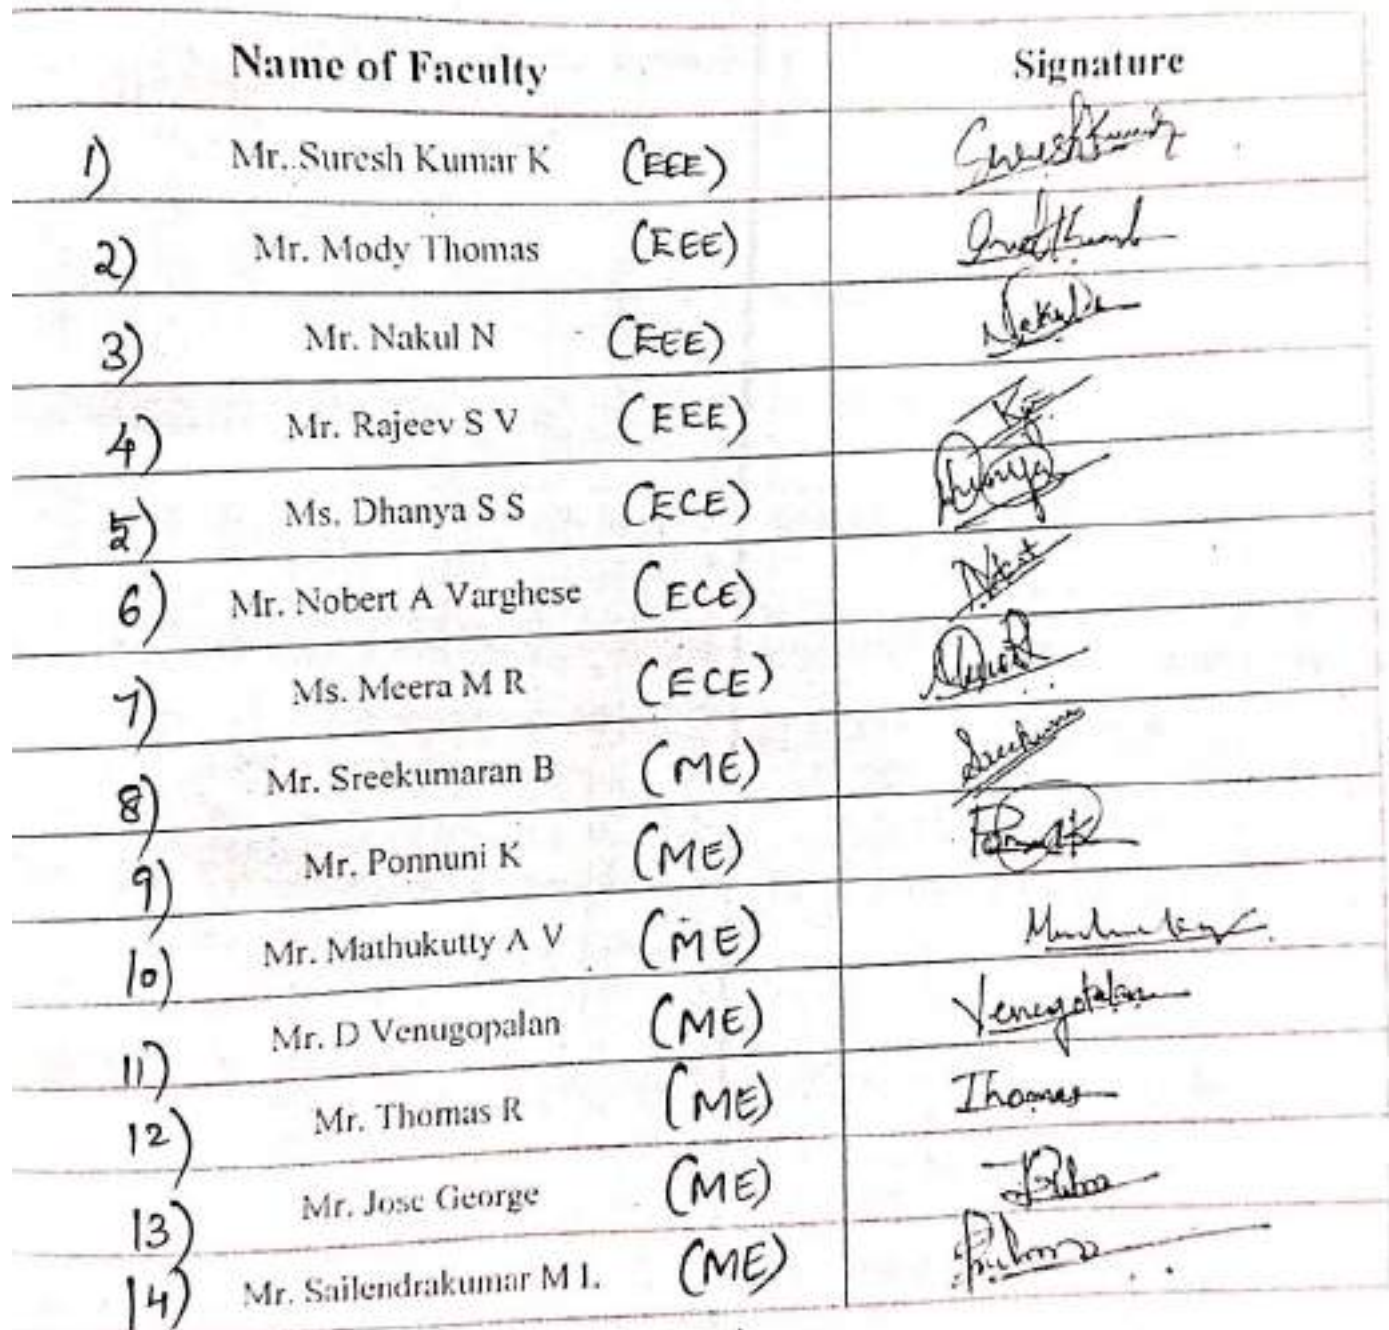 Name of Faculty Signature
1) Mr. Suresh Kumar K (EEE) Sureshkumar
2) Mr. Mody Thomas (EEE)
3) Mr. Nakul N (EEE) Nakul
4) Mr. Rajeev S V (EEE)
5) Ms. Dhanya S S (ECE) Dhanya
6) Mr. Nobert A Varghese (ECE)
7) Ms. Meera M R (ECE)
8) Mr. Sreekumaran B (ME)
9) Mr. Ponnuni K (ME)
10) Mr. Mathukutty A V (ME)
11) Mr. D Venugopalan (ME) Venugopalan
12) Mr. Thomas R (ME) Thomas
13) Mr. Jose George (ME)
14) Mr. Sailendrakumar M L (ME)